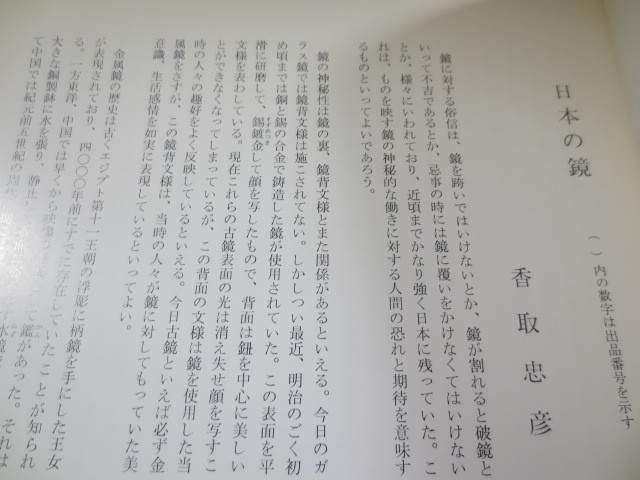 日本の鏡
( )内の数字は出品番号を示す
香取忠彦
鏡に対する俗信は、鏡を跨いではいけないとか、鏡が割れると破鏡と
いって不吉であるとか、忌事の時には鏡に覆いをかけなくてはいけない
とか、様々にいわれており、近頃までかなり強く日本に残っていた。こ
れは、ものを映す鏡の神秘的な働きに対する人間の恐れと期待を意味す
るものといってよいであろう。
鏡の神秘性は鏡の裏、鏡背文様とまた関係があるといえる。今日のガ
ラス鏡では鏡背文様は施こされてない。しかしつい最近、明治のごく初
め頃までは銅と錫の合金で鋳造した鏡が使用されていた。この表面を平
滑に研磨して、錫鍍金して顔を写したもので、背面は鈕を中心に美しい
文様を表わしている。現在これらの古鏡表面の光は消え失せ顔を写すこ
とができなくなってしまっているが、この背面の文様は鏡を使用した当
時の人々の趣好をよく反映しているといえる。今日古鏡といえば必ず金
属鏡をさすが、この鏡背文様は、当時の人々が鏡に対してもっていた美
意識、生活感情を如実に表現しているといってよい。
金属鏡の歴史は古くエジプト第十一王朝の浮彫に柄鏡を手にした王女
が表現されており、四〇〇〇年前にすでに存在していたことが知られ
る。一方東洋、中国では早くから映像の
鑑があった。それは
大きな銅製鉢に水を張り、静止
て中国では紀元前五世紀の